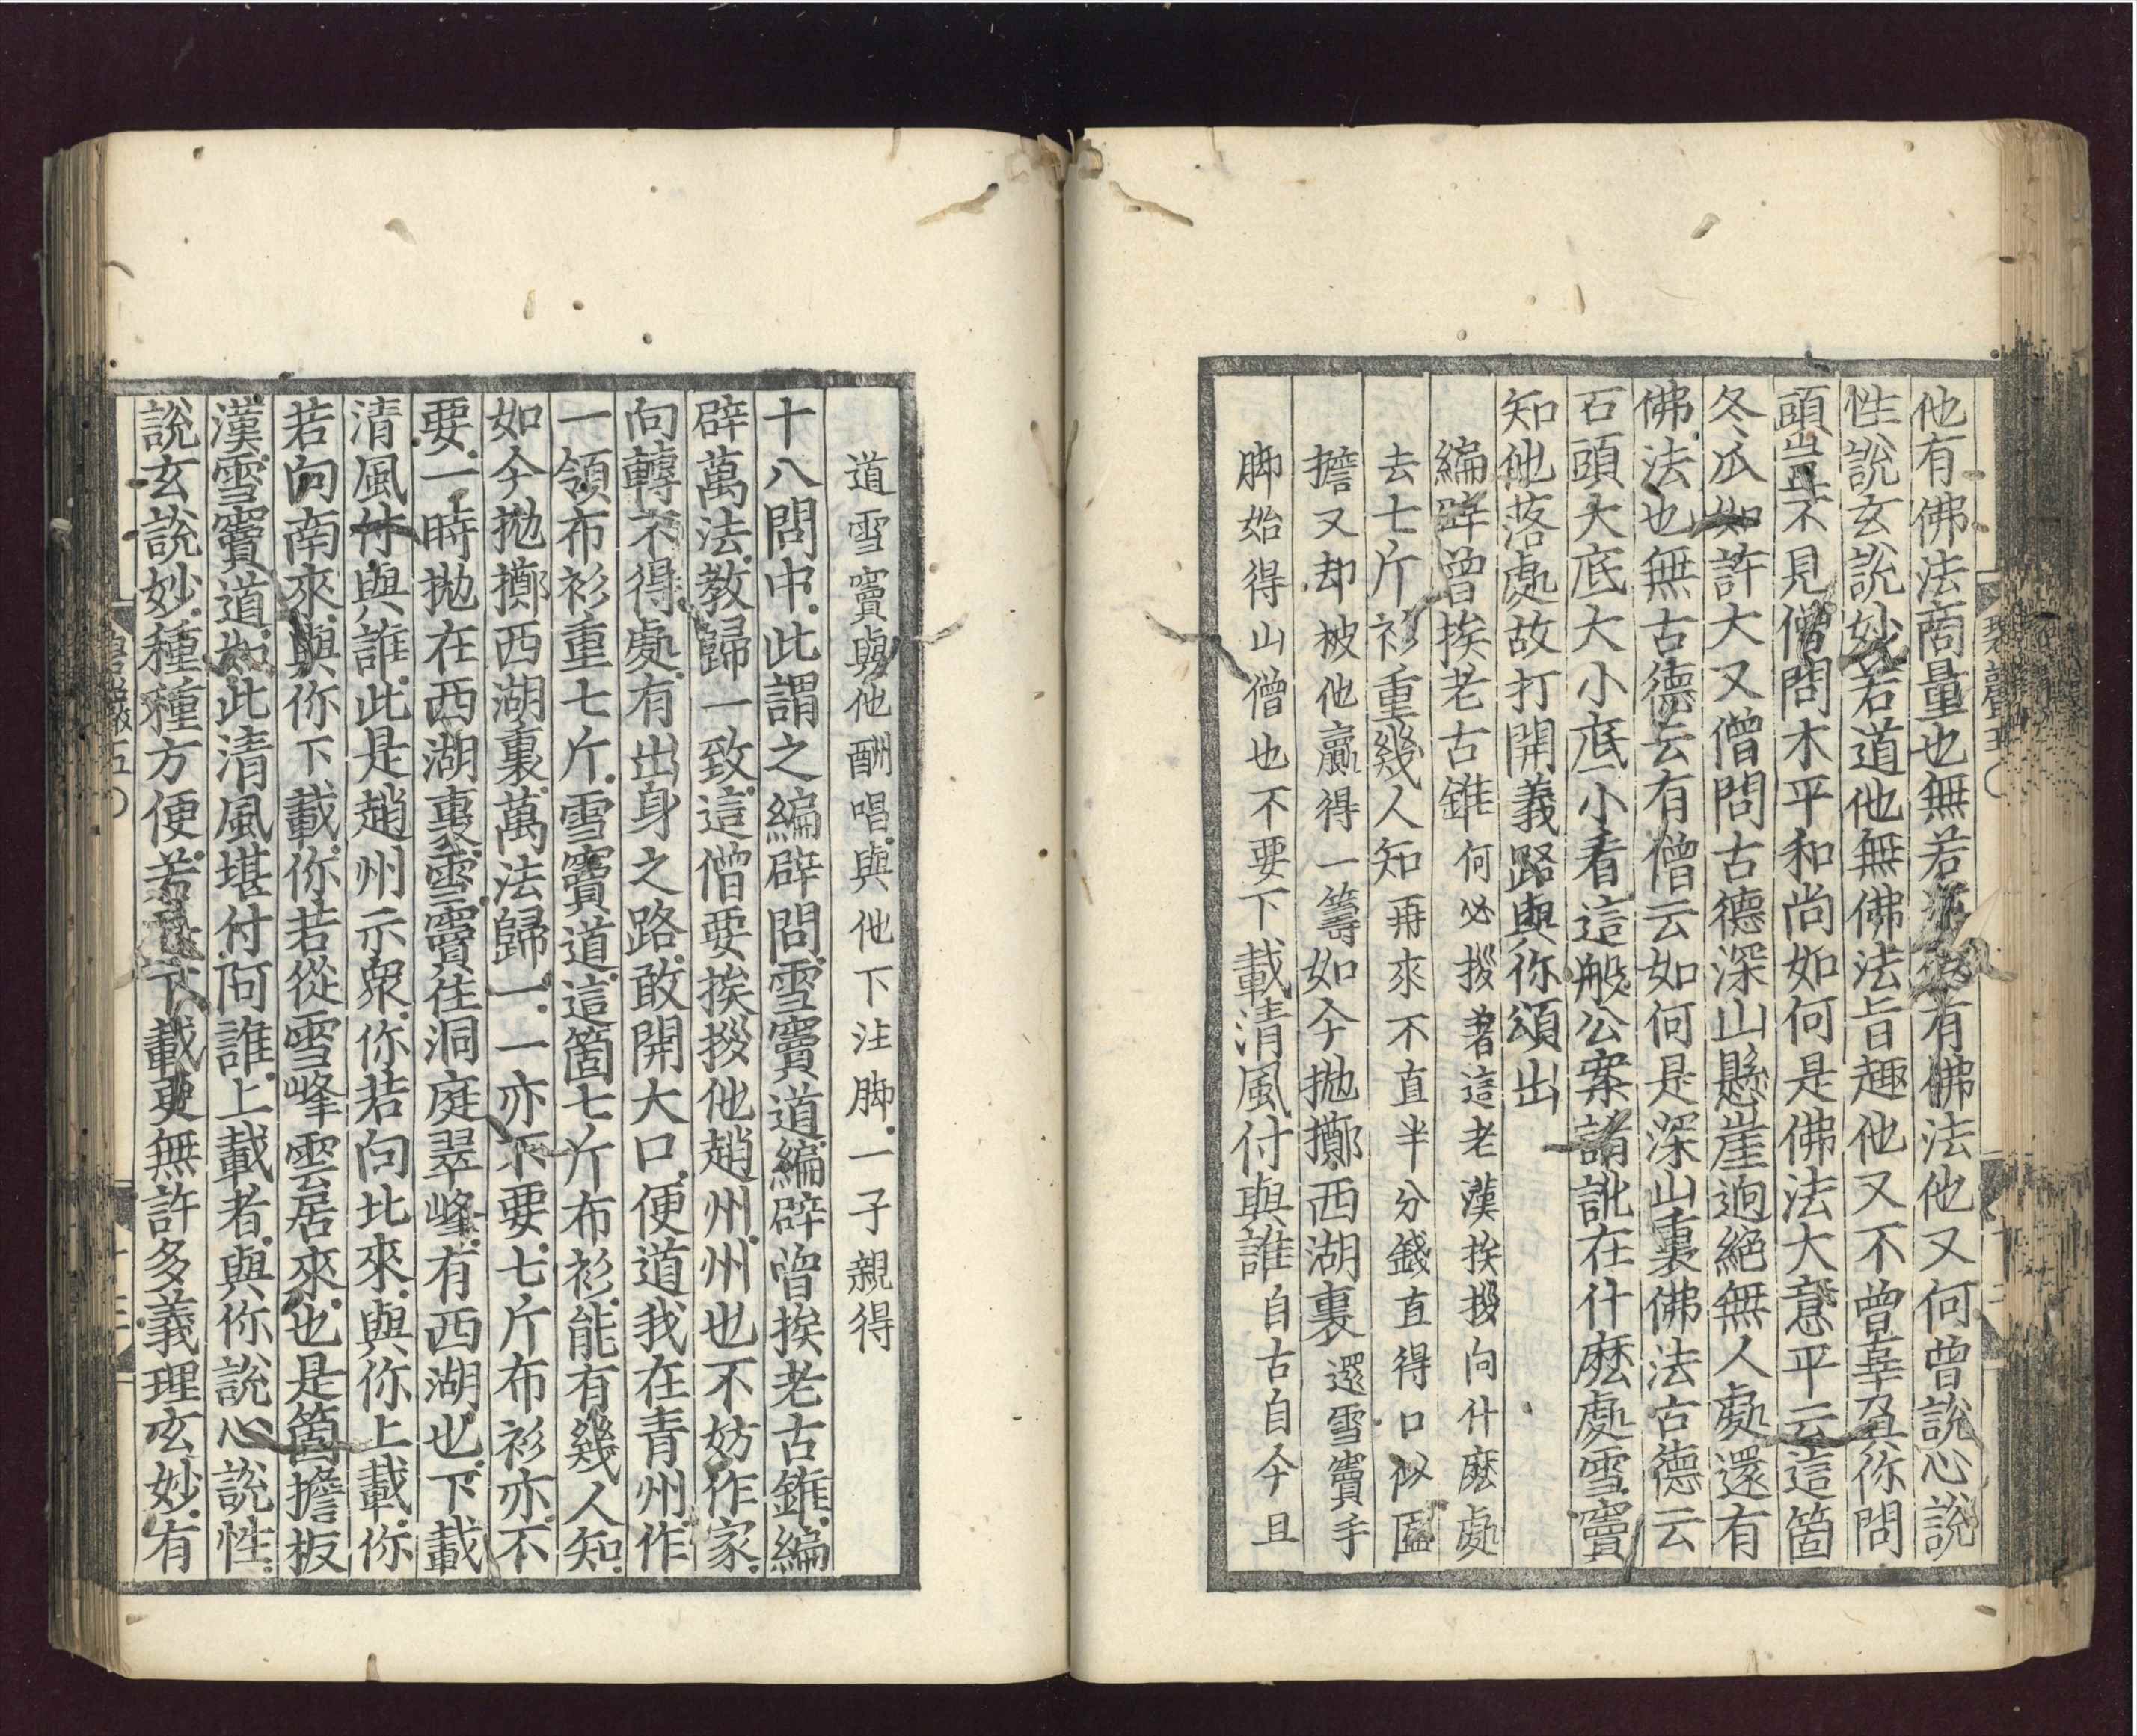 他有佛法商量也無若道他有佛法他又何曾說心說
性說玄說妙若道他無佛法旨趣他又不曾辜負你問
頭豈不見僧問木平和尚如何是佛法大意平云這箇
冬瓜如許大又僧問古德深山懸崖迥絕無人處還有
佛法也無古德云有僧云如何是深山裏佛法古德云
石頭大底大小底小看這般公案誵訛在什麽處雪竇
知他落處故打開義路與你頌出
編辟曾挨老古錐何必拶著這老漢挨拶向什麽處
去七斤衫重幾人知再來不直半分錢直得口似匾
擔又却被他贏得一籌如今抛擲西湖裏還雪竇手
脚始得山僧也不要下載清風付與誰自古自今且
道雪竇與他酬唱與他下注脚一子親得
十八問中此謂之編辟問雪竇道編辟曾挨老古錐編
辟萬法教歸一致這僧要挨拶他趙州州也不妨作家
向轉不得處有出身之路敢開大口便道我在青州作
一領布衫重七斤雪竇道這箇七斤布衫能有幾人知
如今抛擲西湖裏萬法歸一一亦不要七斤布衫亦不
要一時抛在西湖裏雪竇住洞庭翠峰有西湖也下載
清風付與誰此是趙州示衆你若向北來與你上載你
若向南來與你下載你若從雪峰雲居來也是箇擔板
漢雪竇道如此清風堪付阿誰上載者與你說心說性
說玄說妙種種方便若是下載更無許多義理玄妙有